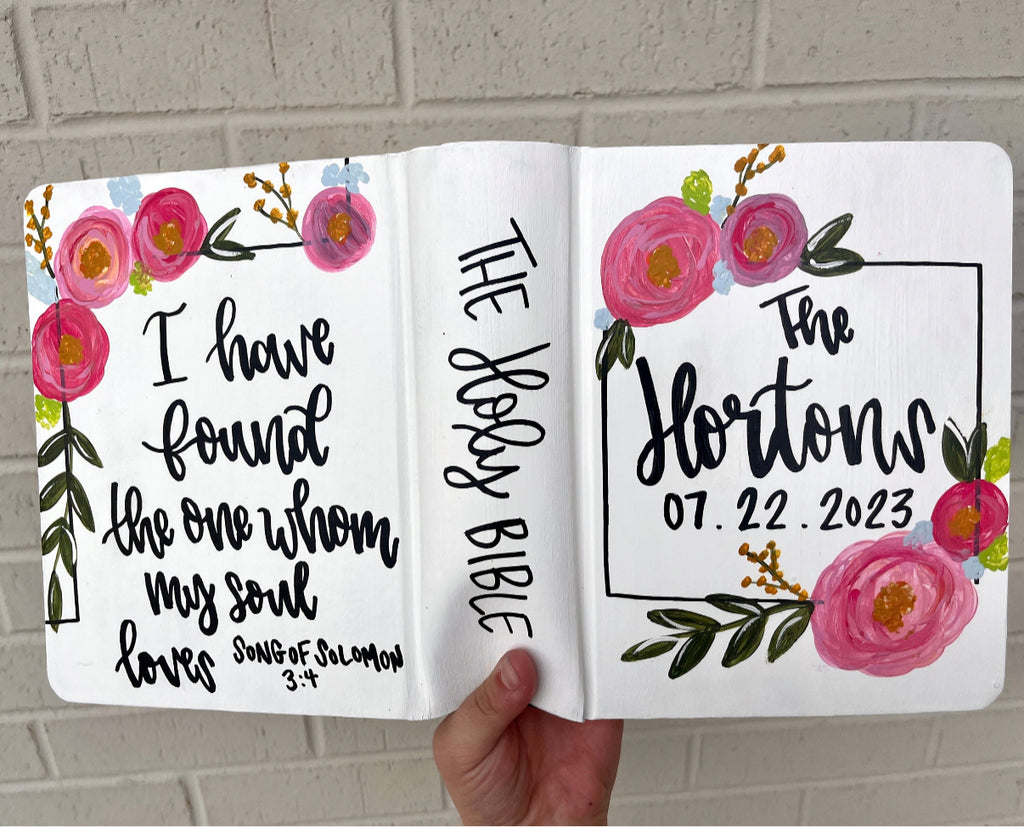 I have
found
the one whom
my soul
loves SONG OF SOLOMON
3:4
THE Holy BIBLE
The
Hortons
07.22.2023